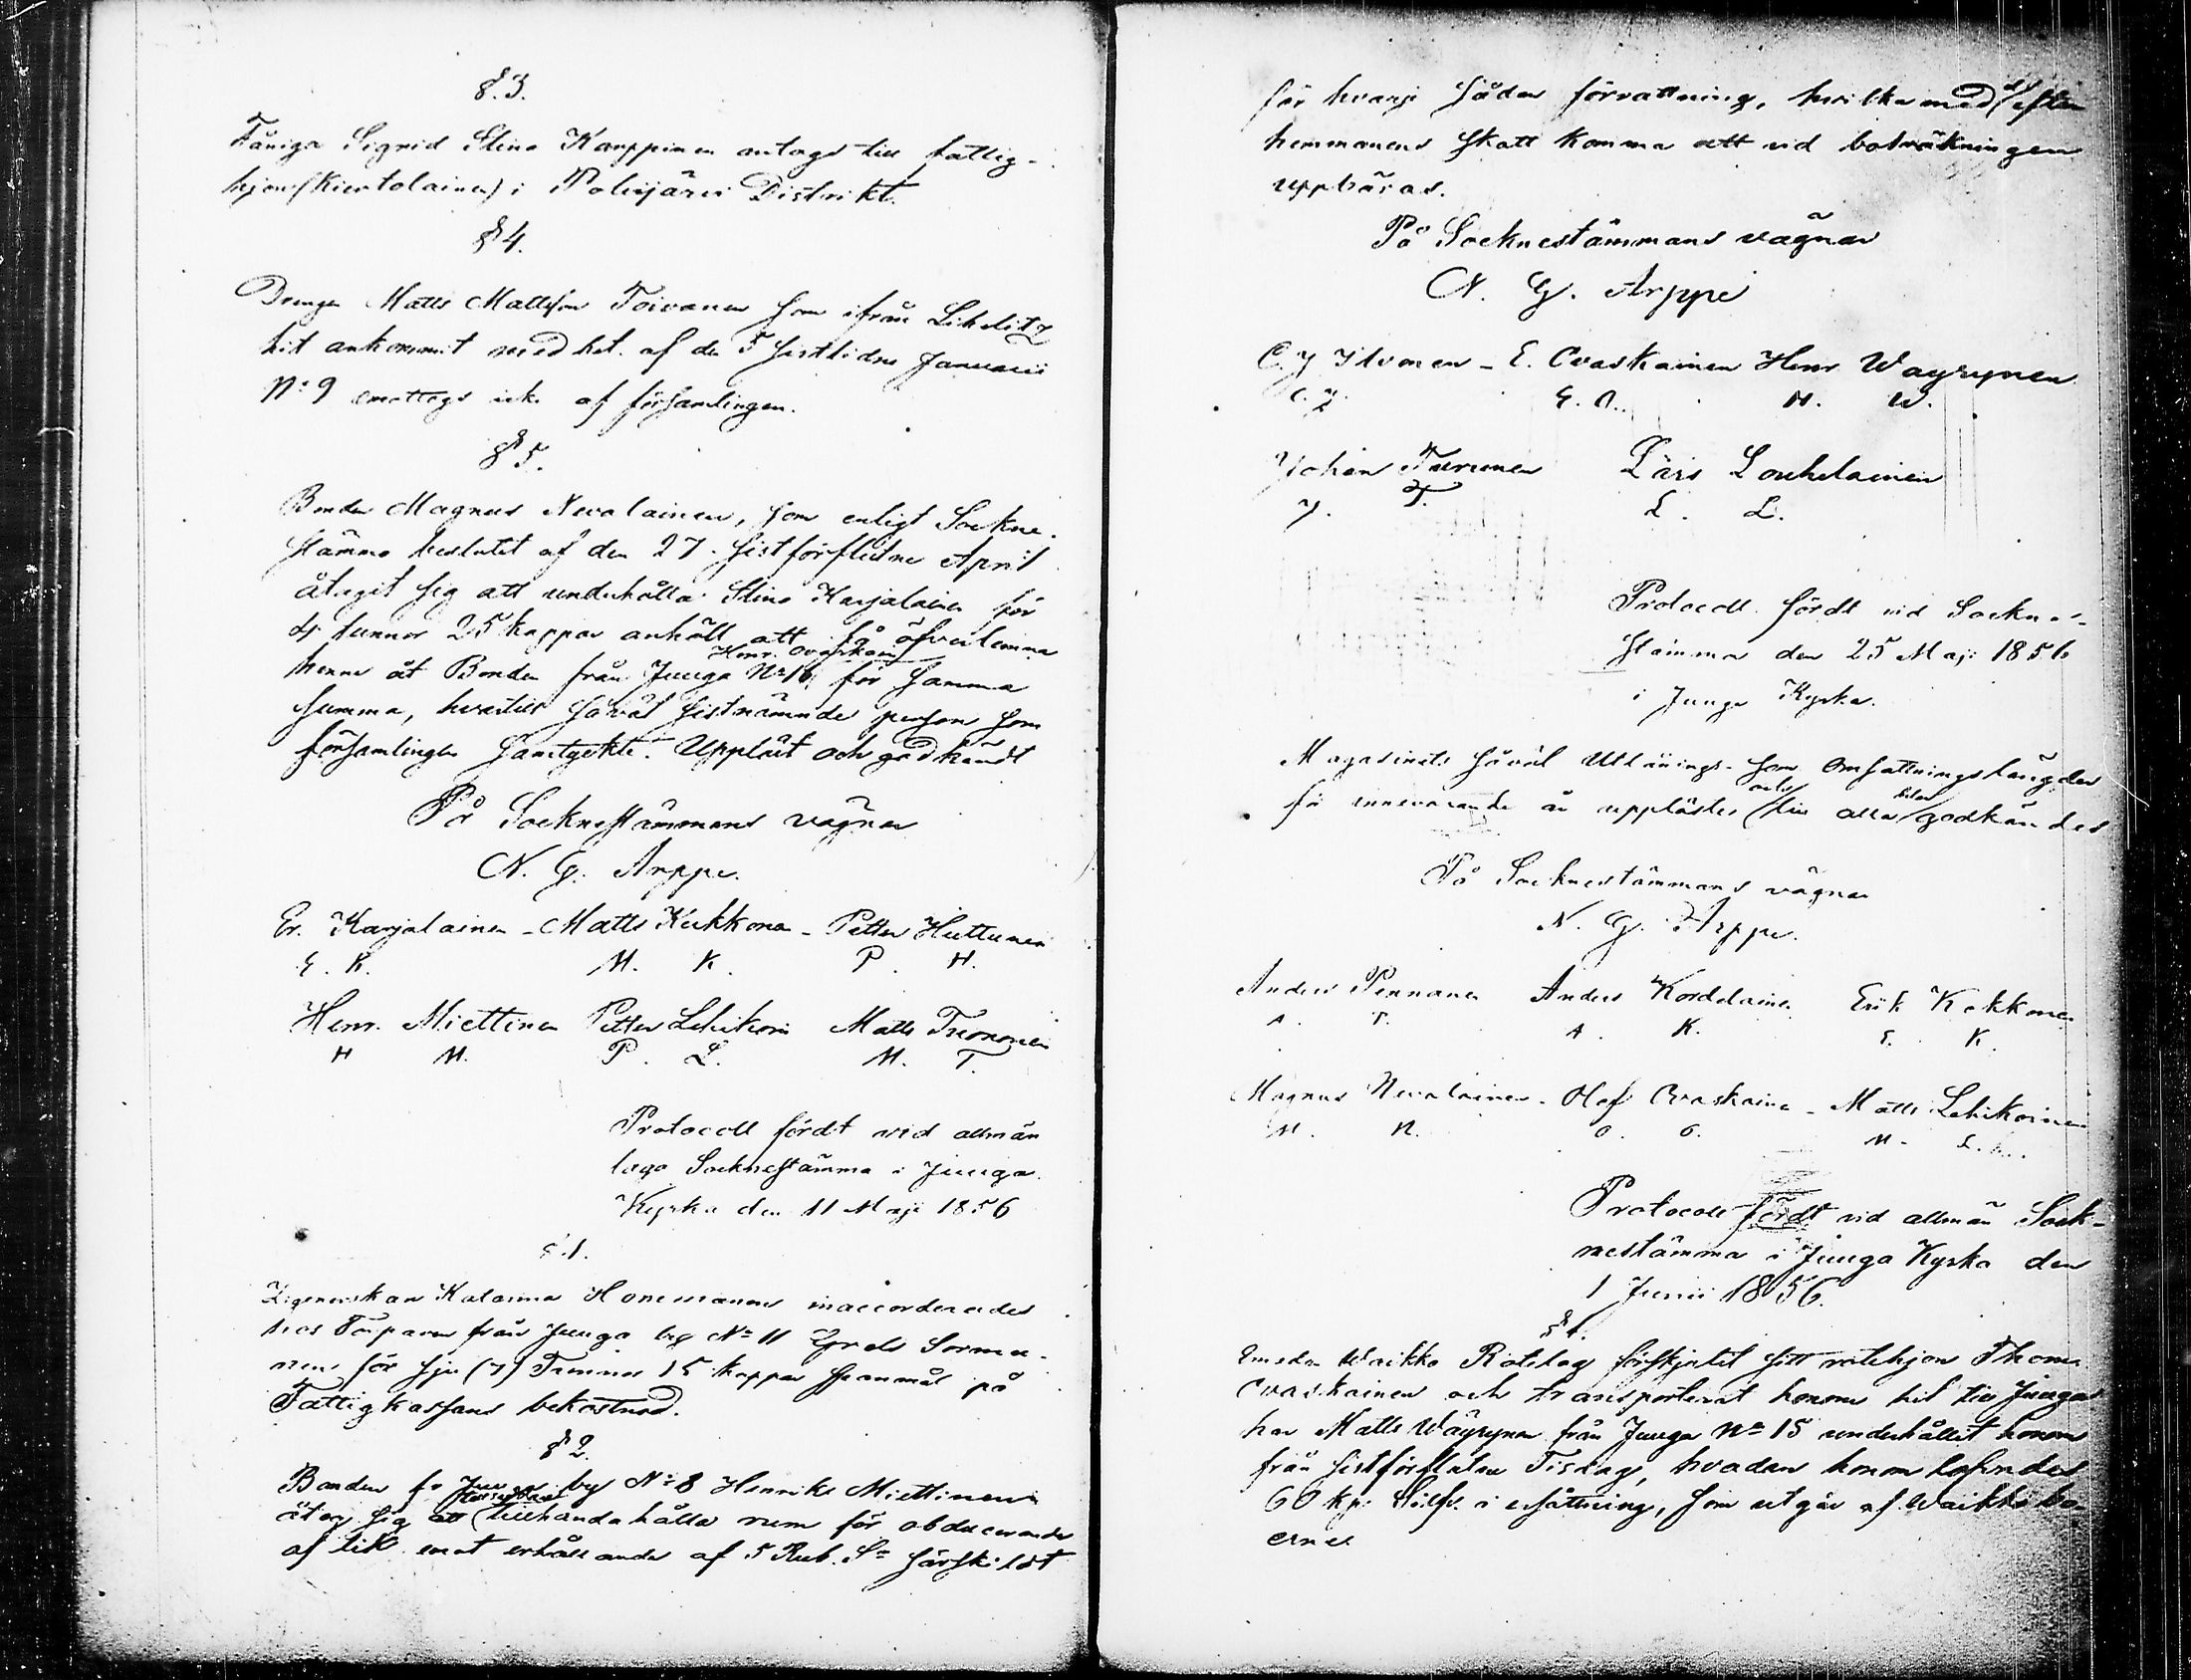 §.3.
Fåniga Sigrid Stina Karppinen antogs till fattig-
hjon (Kiertolainen) i Polvijärvi Distrikt.
§ 4.
Drengen Matts Mattsson Toivanen som ifrån Libelitz
hit ankommit med bet. af den 5 sistlidne Januarii
N:o 9 emottogs icke af församlingen.
§ 5.
Bonden Magnus Nevalainen, som enligt Sockne-
stämmo beslutet af den 27. sistförflutne April
åtagit sig att underhålla Stina Karjalainen för
4 tunnor 25 kappar anhöll att få öfverlemna
henne åt Bonden från Juuga N:o 16 Henr. Ovaskain för samma
summa, hvartill såväl sistnämnde person som
församlingen samtyckte. Uppläst och godkändt
På Socknestämmans vägnar
N. G. Arppe.
Er. Karjalainen - Matts Kukkonen - Petter Huttunen
E. K. M. K. P. H.
Henr. Miettinen Petter Lehikoin Matts Tuononen
H M. P. L. M. T.
Protocoll fördt vid allmän
laga Socknestämma i Juuga
Kyrka den 11 Maji 1856
§.1.
Zigenerskan Katarina Honemanen inaccorderades
hos Torparen från Juuga by N:o 11 Sorma-
nen för sju (7) Tunnor 15 kappar spanmål på
Fattigkassans bekostnad.
§ 2.
Bonden fr Juuga by N:o 8 Henriks Miettinen
åtog sig att tillhandahålla rum för obducerande
af lik emot erhållande af 5 Rub. Sr särskildt
för hvarje sådan förrättning, hvilka medel efter
hemmanens skatt komma att vid boträkningen
uppbäras.
På Socknestämmans vägnar
N. G. Arppe
C. J Ilvonen - E. Ovaskainen Henr Wäyrynen
C. J. E. O. H. W.
Johan Turunen Lars Louhelainen
J. T. L. L.
Protocoll fördt vid Sockne-
stämma den 25 Maji 1856
i Juuga Kyrka.
Magasinets såväl Utlånings- som Omsattningslängder
för innevarande år upplästes och till alla delar godkändes
På Socknestämmans vägnar
N. G. Arppe.
Anders Pennanen Anders Kordelainen Erik Kokkonen
A. P. A. K. E. K.
Magnus Nevalainen - Olof Ovaskainen - Matts Lehikoinen
M. N. O. O. M. L.
Protocoll fördt vid allmän Sock-
nestämma i Juuga Kyrka den
1 Junii 1856.
§ 1.
Emedan Waikko Rotelag förskjutit sitt rotehjon Thom
Ovaskainen och transporterat honom hit till Juuga
har Matts Wäyrynen från Juuga N:o 15 underhållit honom
från sistförflutne Tisdag, hvadan honom
60 kp: Silfr. i ersättning, som utgår af Waikko bo-
erne